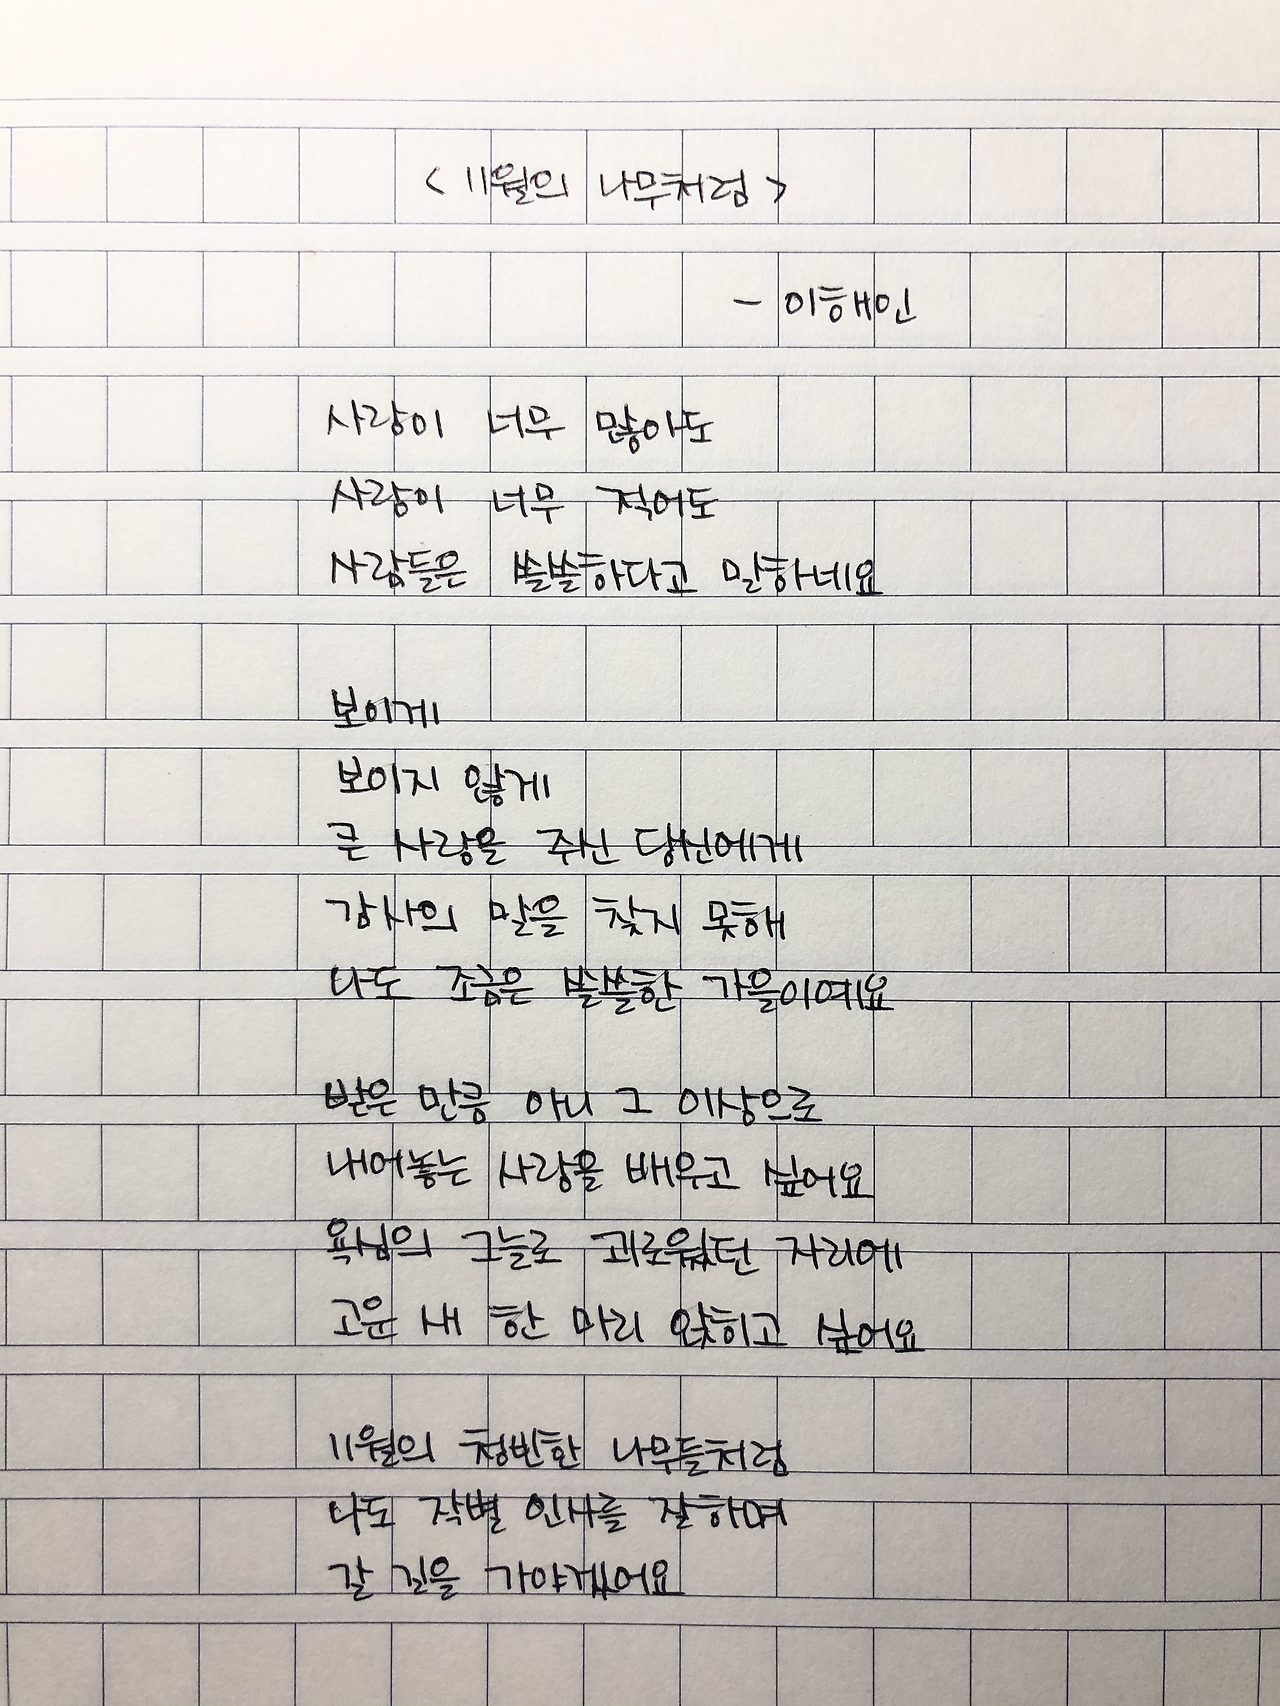 < 11월의 나무처럼 >
- 이해인
사랑이 너무 많아도
사랑이 너무 적어도
사람들은 쓸쓸하다고 말하네요
보이게
보이지 않게
큰 사랑을 주신 당신에게
감사의 말을 찾지 못해
나도 조금은 쓸쓸한 가을이예요
받은 만큼 아니 그 이상으로
내어놓는 사랑을 배우고 싶어요
욕심의 그늘로 괴로웠던 자리에
고운 새 한 마리 앉히고 싶어요
11월의 청빈한 나무들처럼
나도 작별 인사를 잘하며
갈 길을 가야겠어요